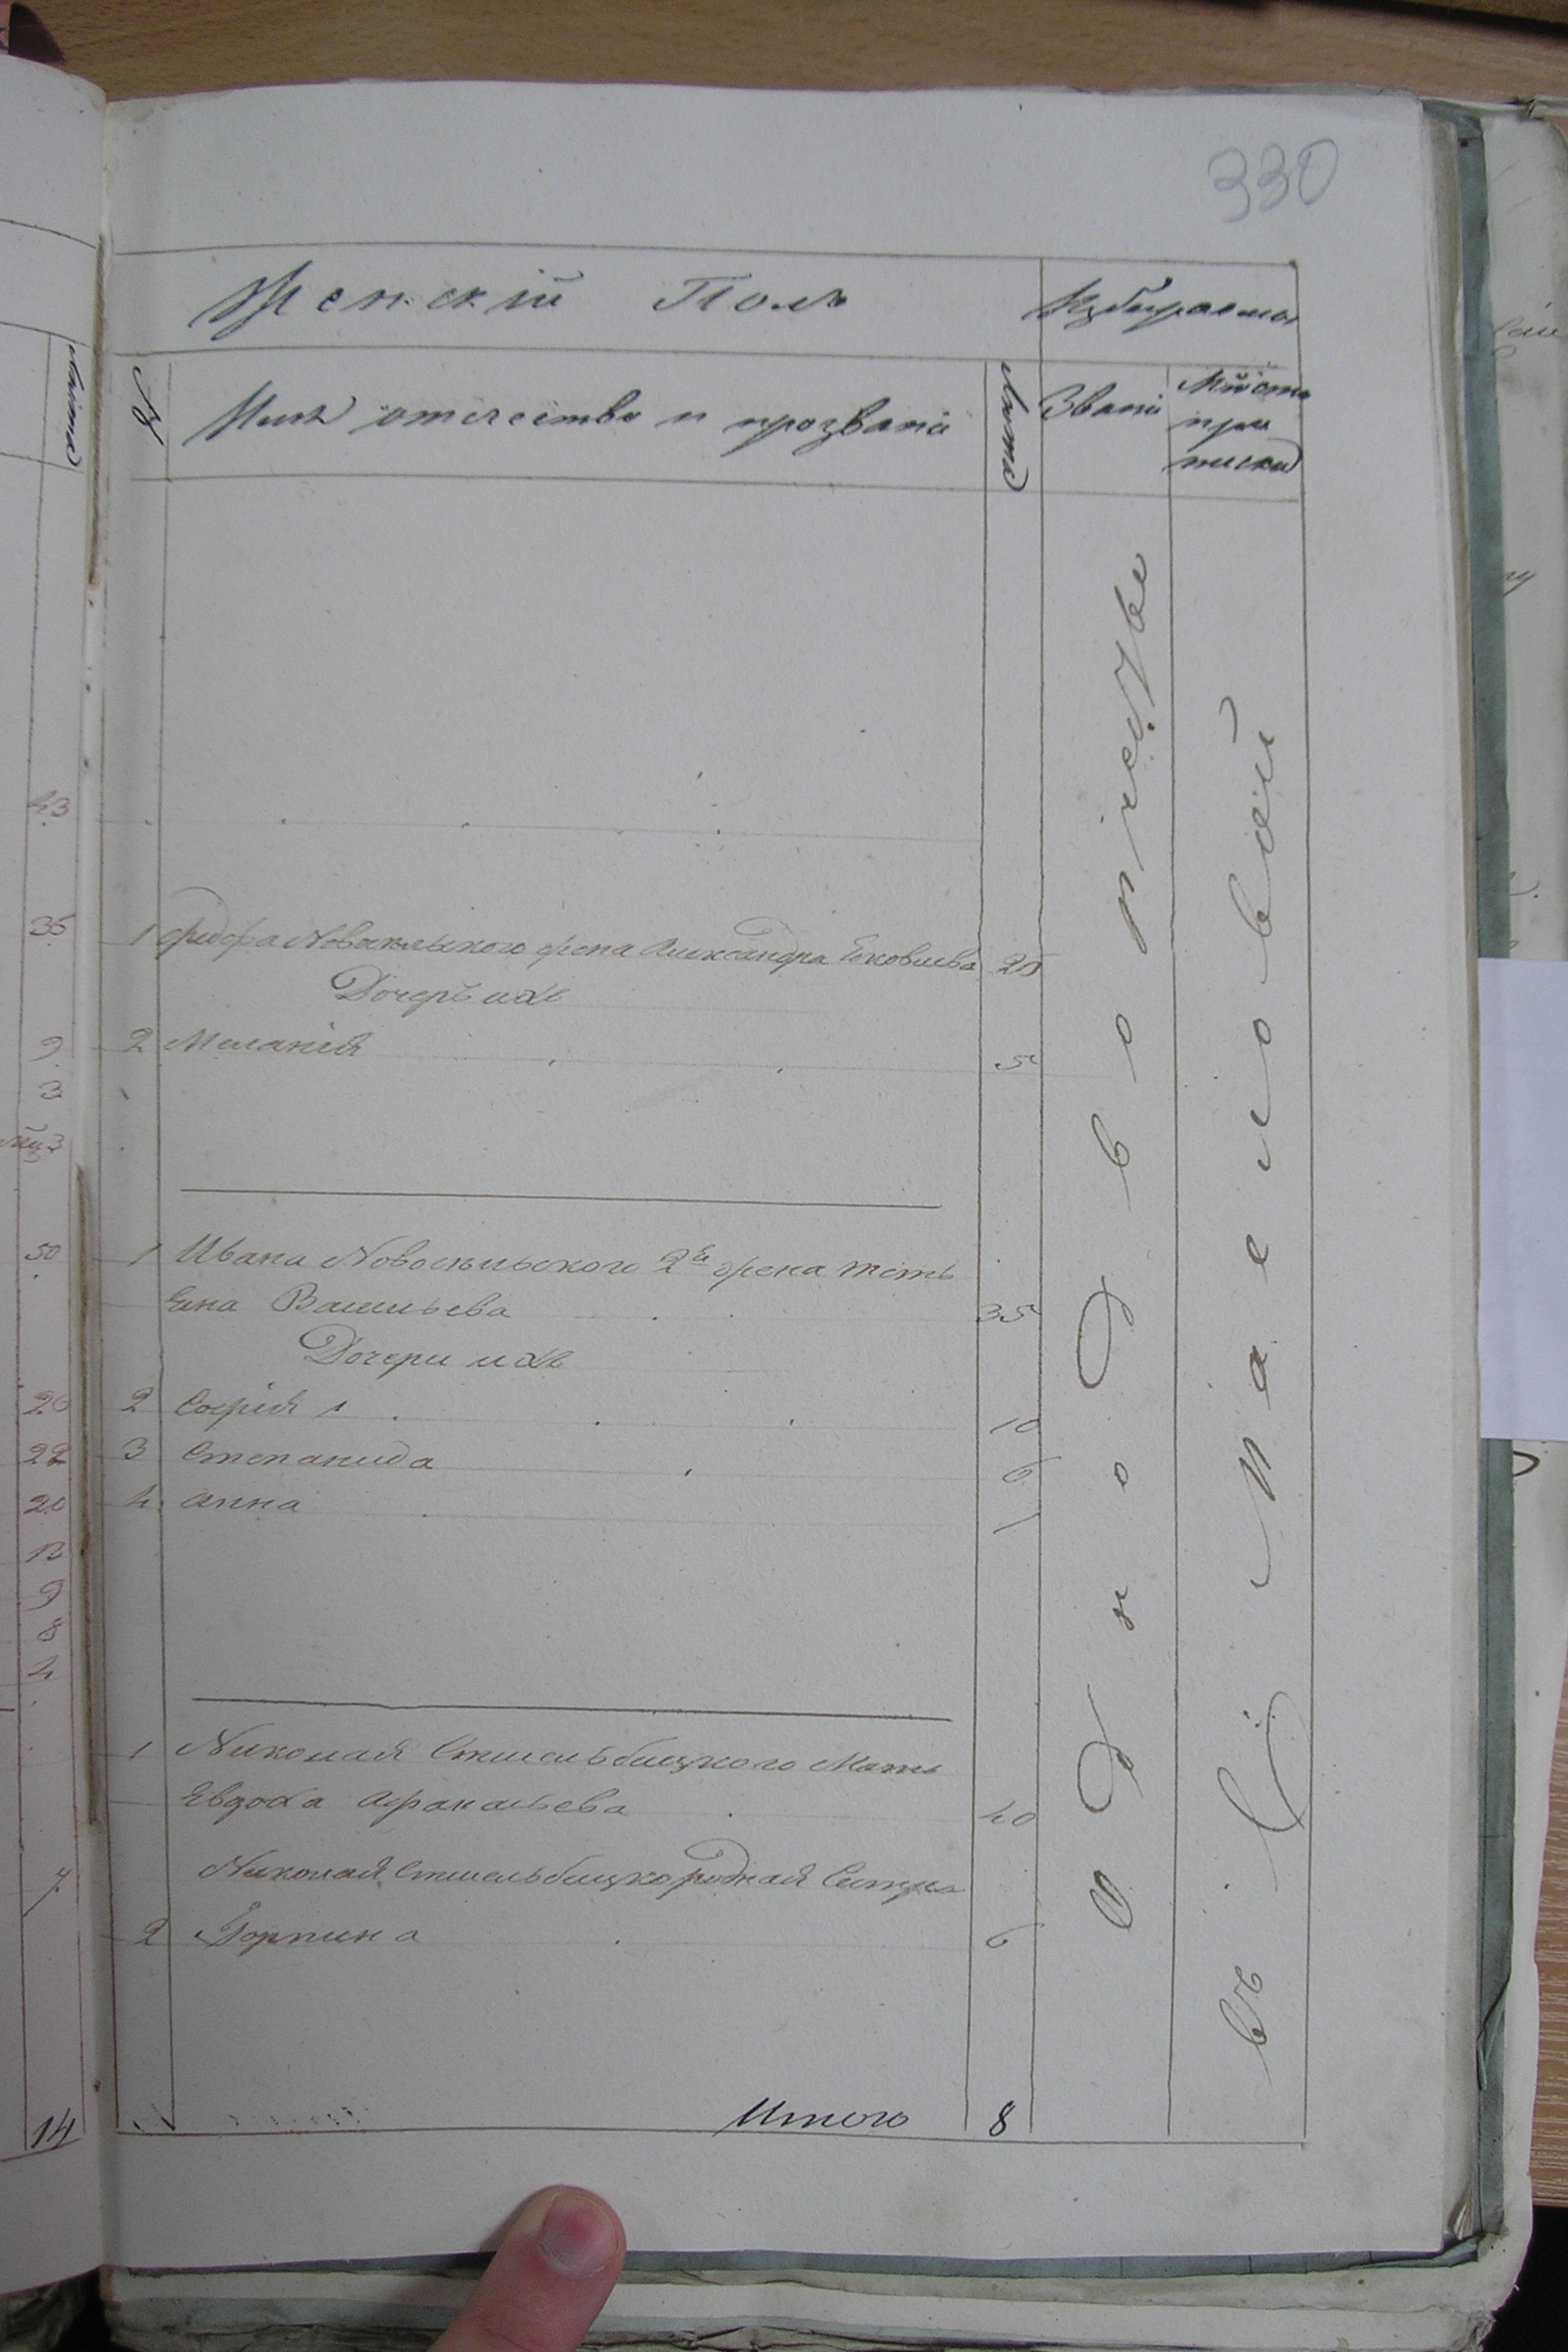 330
Женскій Полъ
Избираемы
№
Имя отечество и прозваніи
Лета
Званіи
Мѣста
при
писки
1 Новоселского жена Александра Яковлева 25
Дочерь ихъ
2 Меланія 5
1 Ивана Новосельского 2я жена
Васильева 35
Дочери ихъ
2 Софія 1 10
3 Степанида 6
4 Анна 1
1 Николая Стшельбицкого Мать
Евдоха Афанасьева 40
Николая Стшельбицко родная Сестра
2 Горпина 6
Итого 8
Однодворческое
въ
43
35
9
3
50
20
22
20
12
9
8
4
7
14